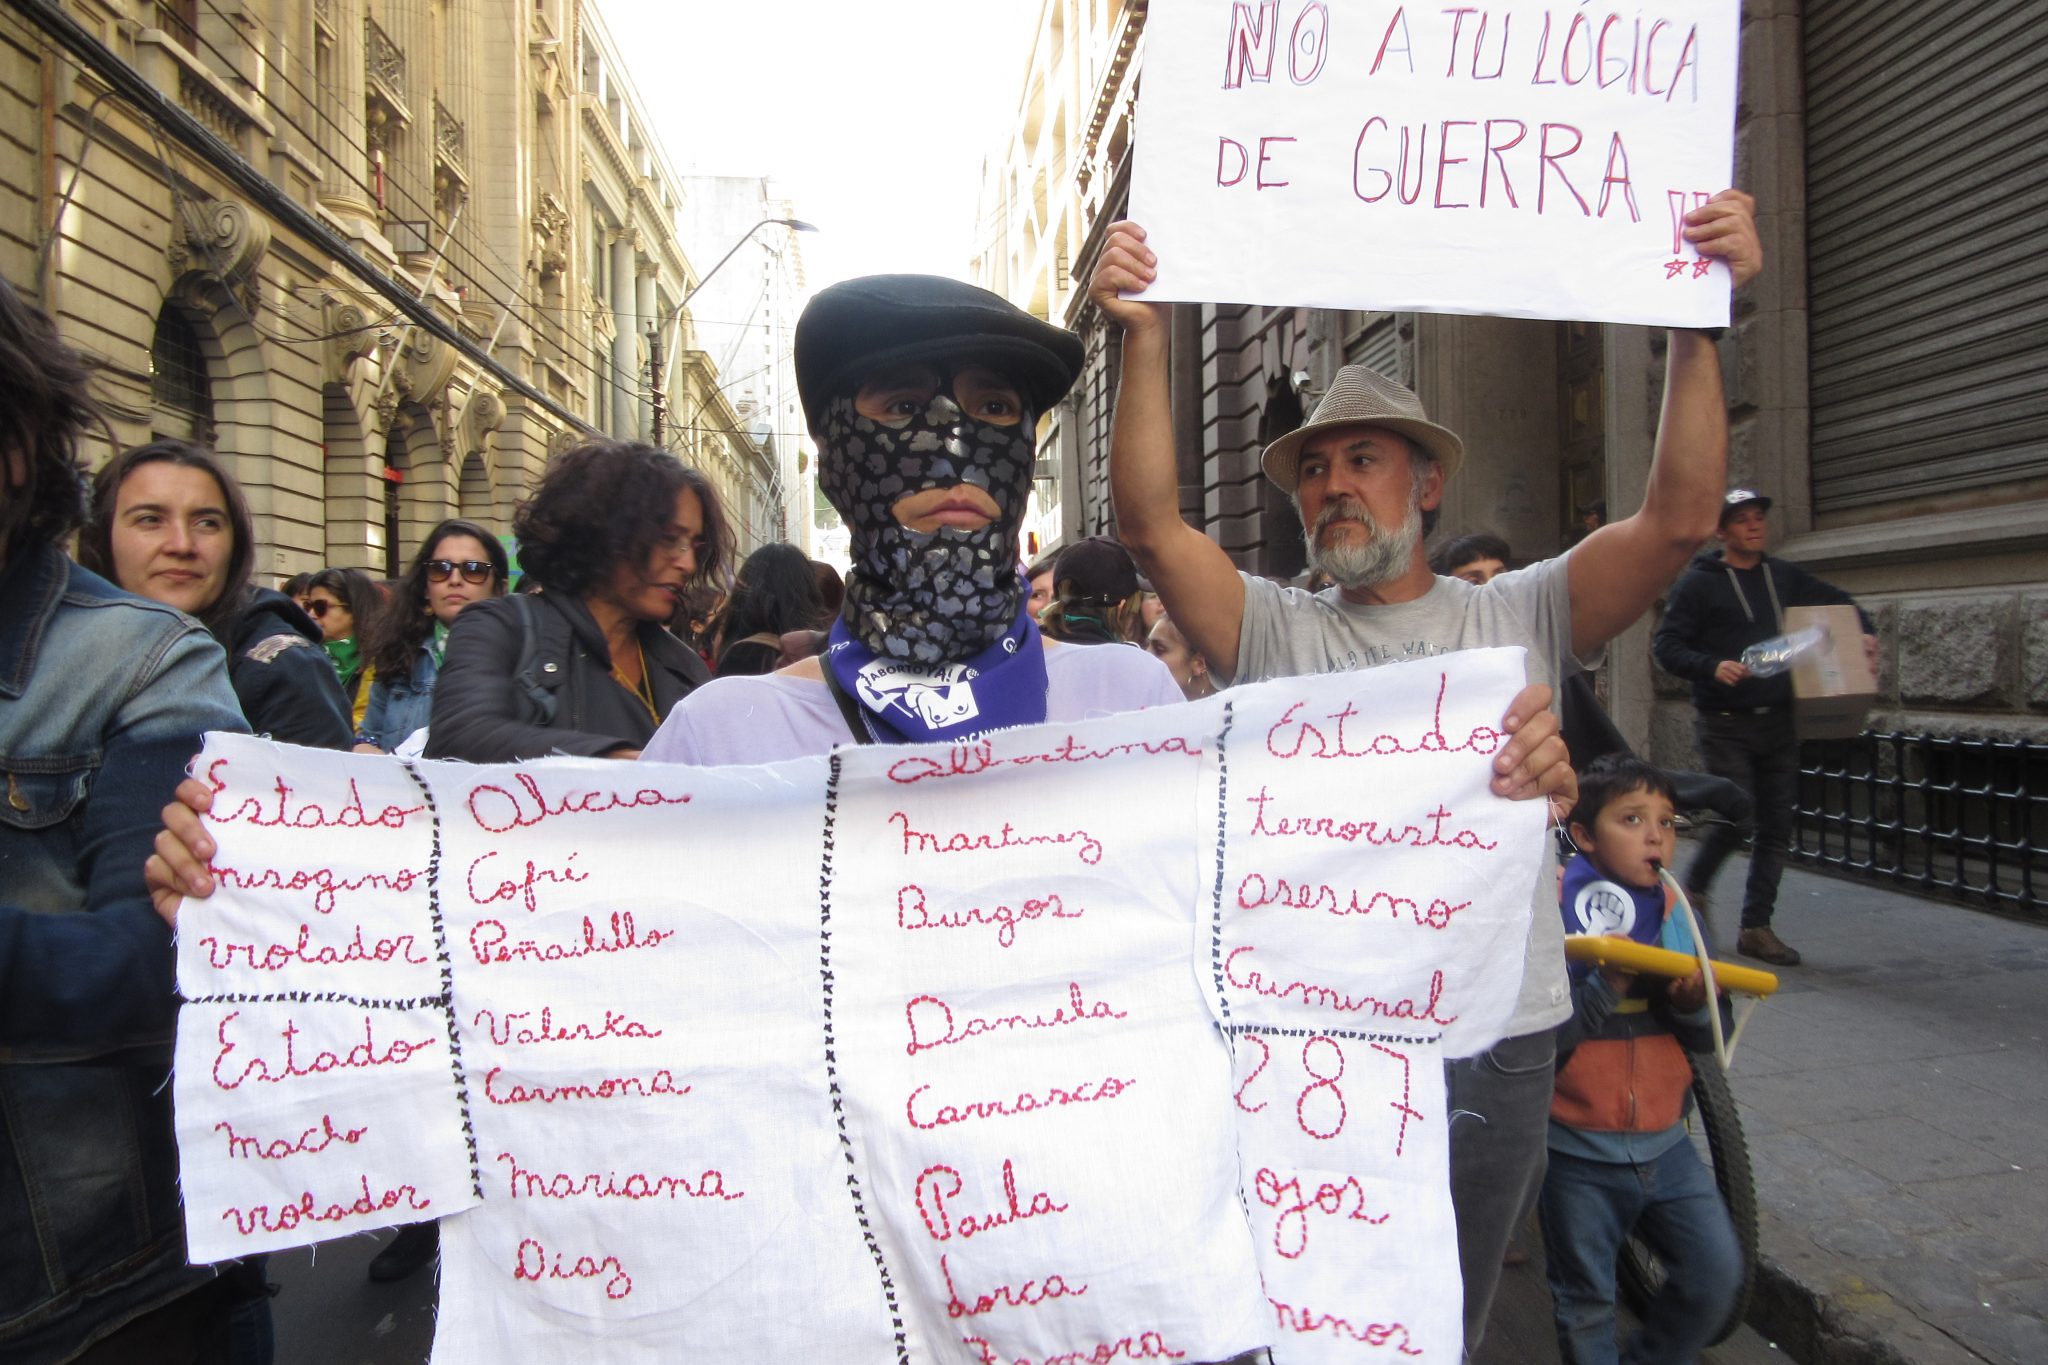 NO A TU LÓGICA
DE GUERRA!!
¡ABORTO YA!
Estado
misogino
violador
Estado
Macho
violador
Alicia
Cofré
Peñailillo
Valeska
Carmona
Mariana
Diaz
Albertina
Martinez
Burgos
Daniela
Carrasco
Paula
Lorca
Zamora
Estado
terrorista
asesino
Criminal
287
ojos
menos